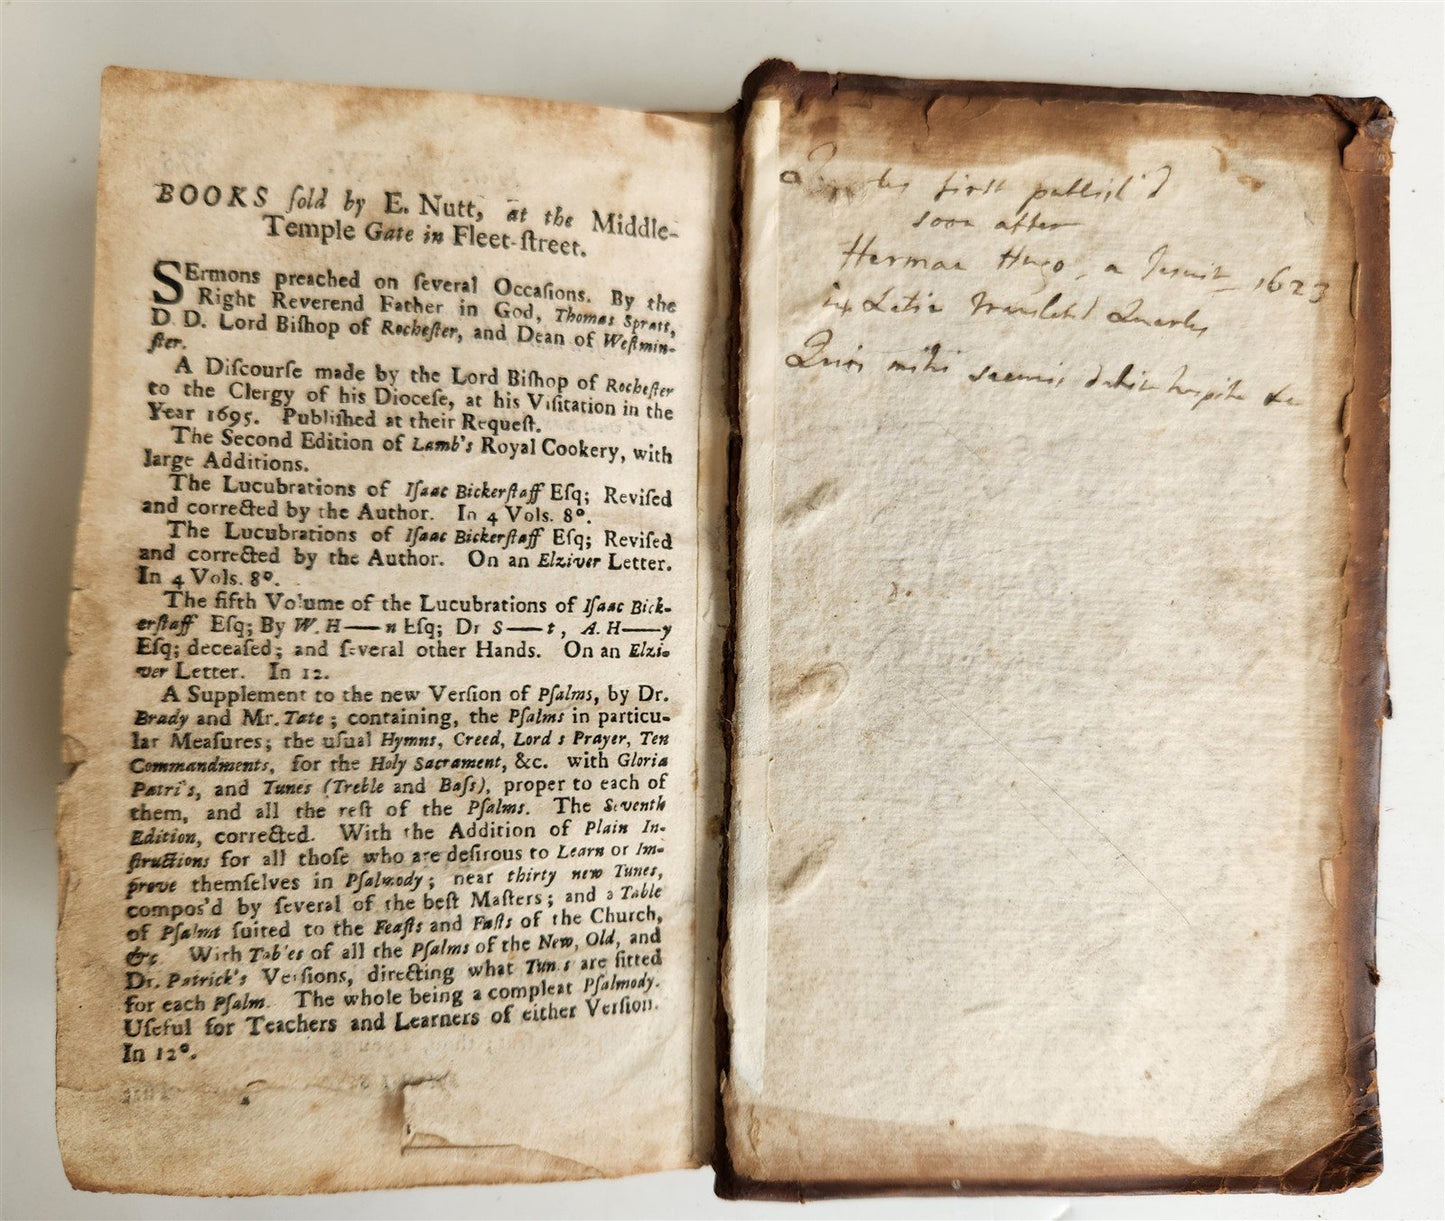 BOOKS ſold by E. Nutt, at the Middle-
Temple Gate in Fleet-ſtreet.
SErmons preached on ſeveral Occaſions. By the
Right Reverend Father in God, Thomas Spratt,
D. D. Lord Biſhop of Rocheſter, and Dean of Weſtmin-
ſter.
A Diſcourſe made by the Lord Biſhop of Rocheſter
to the Clergy of his Dioceſe, at his Viſitation in the
Year 1695. Publiſhed at their Requeſt.
The Second Edition of Lamb's Royal Cookery, with
large Additions.
The Lucubrations of Iſaac Bickerſtaff Eſq; Reviſed
and corrected by the Author. In 4 Vols. 8°.
The Lucubrations of Iſaac Bickerſtaff Eſq; Reviſed
and corrected by the Author. On an Elziver Letter.
In 4 Vols. 8°.
The fifth Volume of the Lucubrations of Iſaac Bick-
erſtaff Eſq; By W. H——n Eſq; Dr S——t, A. H——y
Eſq; deceaſed; and ſeveral other Hands. On an Elzi-
ver Letter. In 12.
A Supplement to the new Verſion of Pſalms, by Dr.
Brady and Mr. Tate; containing, the Pſalms in particu-
lar Meaſures; the uſual Hymns, Creed, Lord s Prayer, Ten
Commandments, for the Holy Sacrament, &c. with Gloria
Patri's, and Tunes (Treble and Baſs), proper to each of
them, and all the reſt of the Pſalms. The Seventh
Edition, corrected. With the Addition of Plain In-
ſtructions for all thoſe who are deſirous to Learn or Im-
prove themſelves in Pſalmody; near thirty new Tunes,
compos'd by ſeveral of the beſt Maſters; and a Table
of Pſalms ſuited to the Feaſts and Faſts of the Church,
&c. With Tables of all the Pſalms of the New, Old, and
Dr. Patrick's Verſions, directing what Tunes are fitted
for each Pſalm. The whole being a compleat Pſalmody.
Uſeful for Teachers and Learners of either Verſion.
In 12°.
Quarles first publish'd
soon after
Herman Hugo, a Jesuit 1623
in Latin translated Quarles
mihi